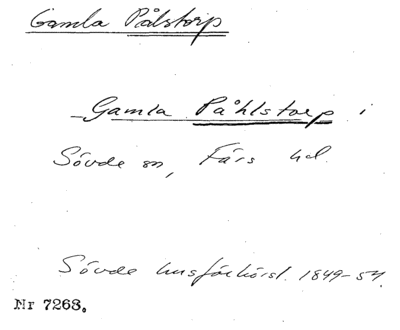 Gamla Pålstorp
Gamla Påhlstorp i
Sövde sn, Färs hd.
Sövde husförhörsl. 1849-54.
Nr 7268.